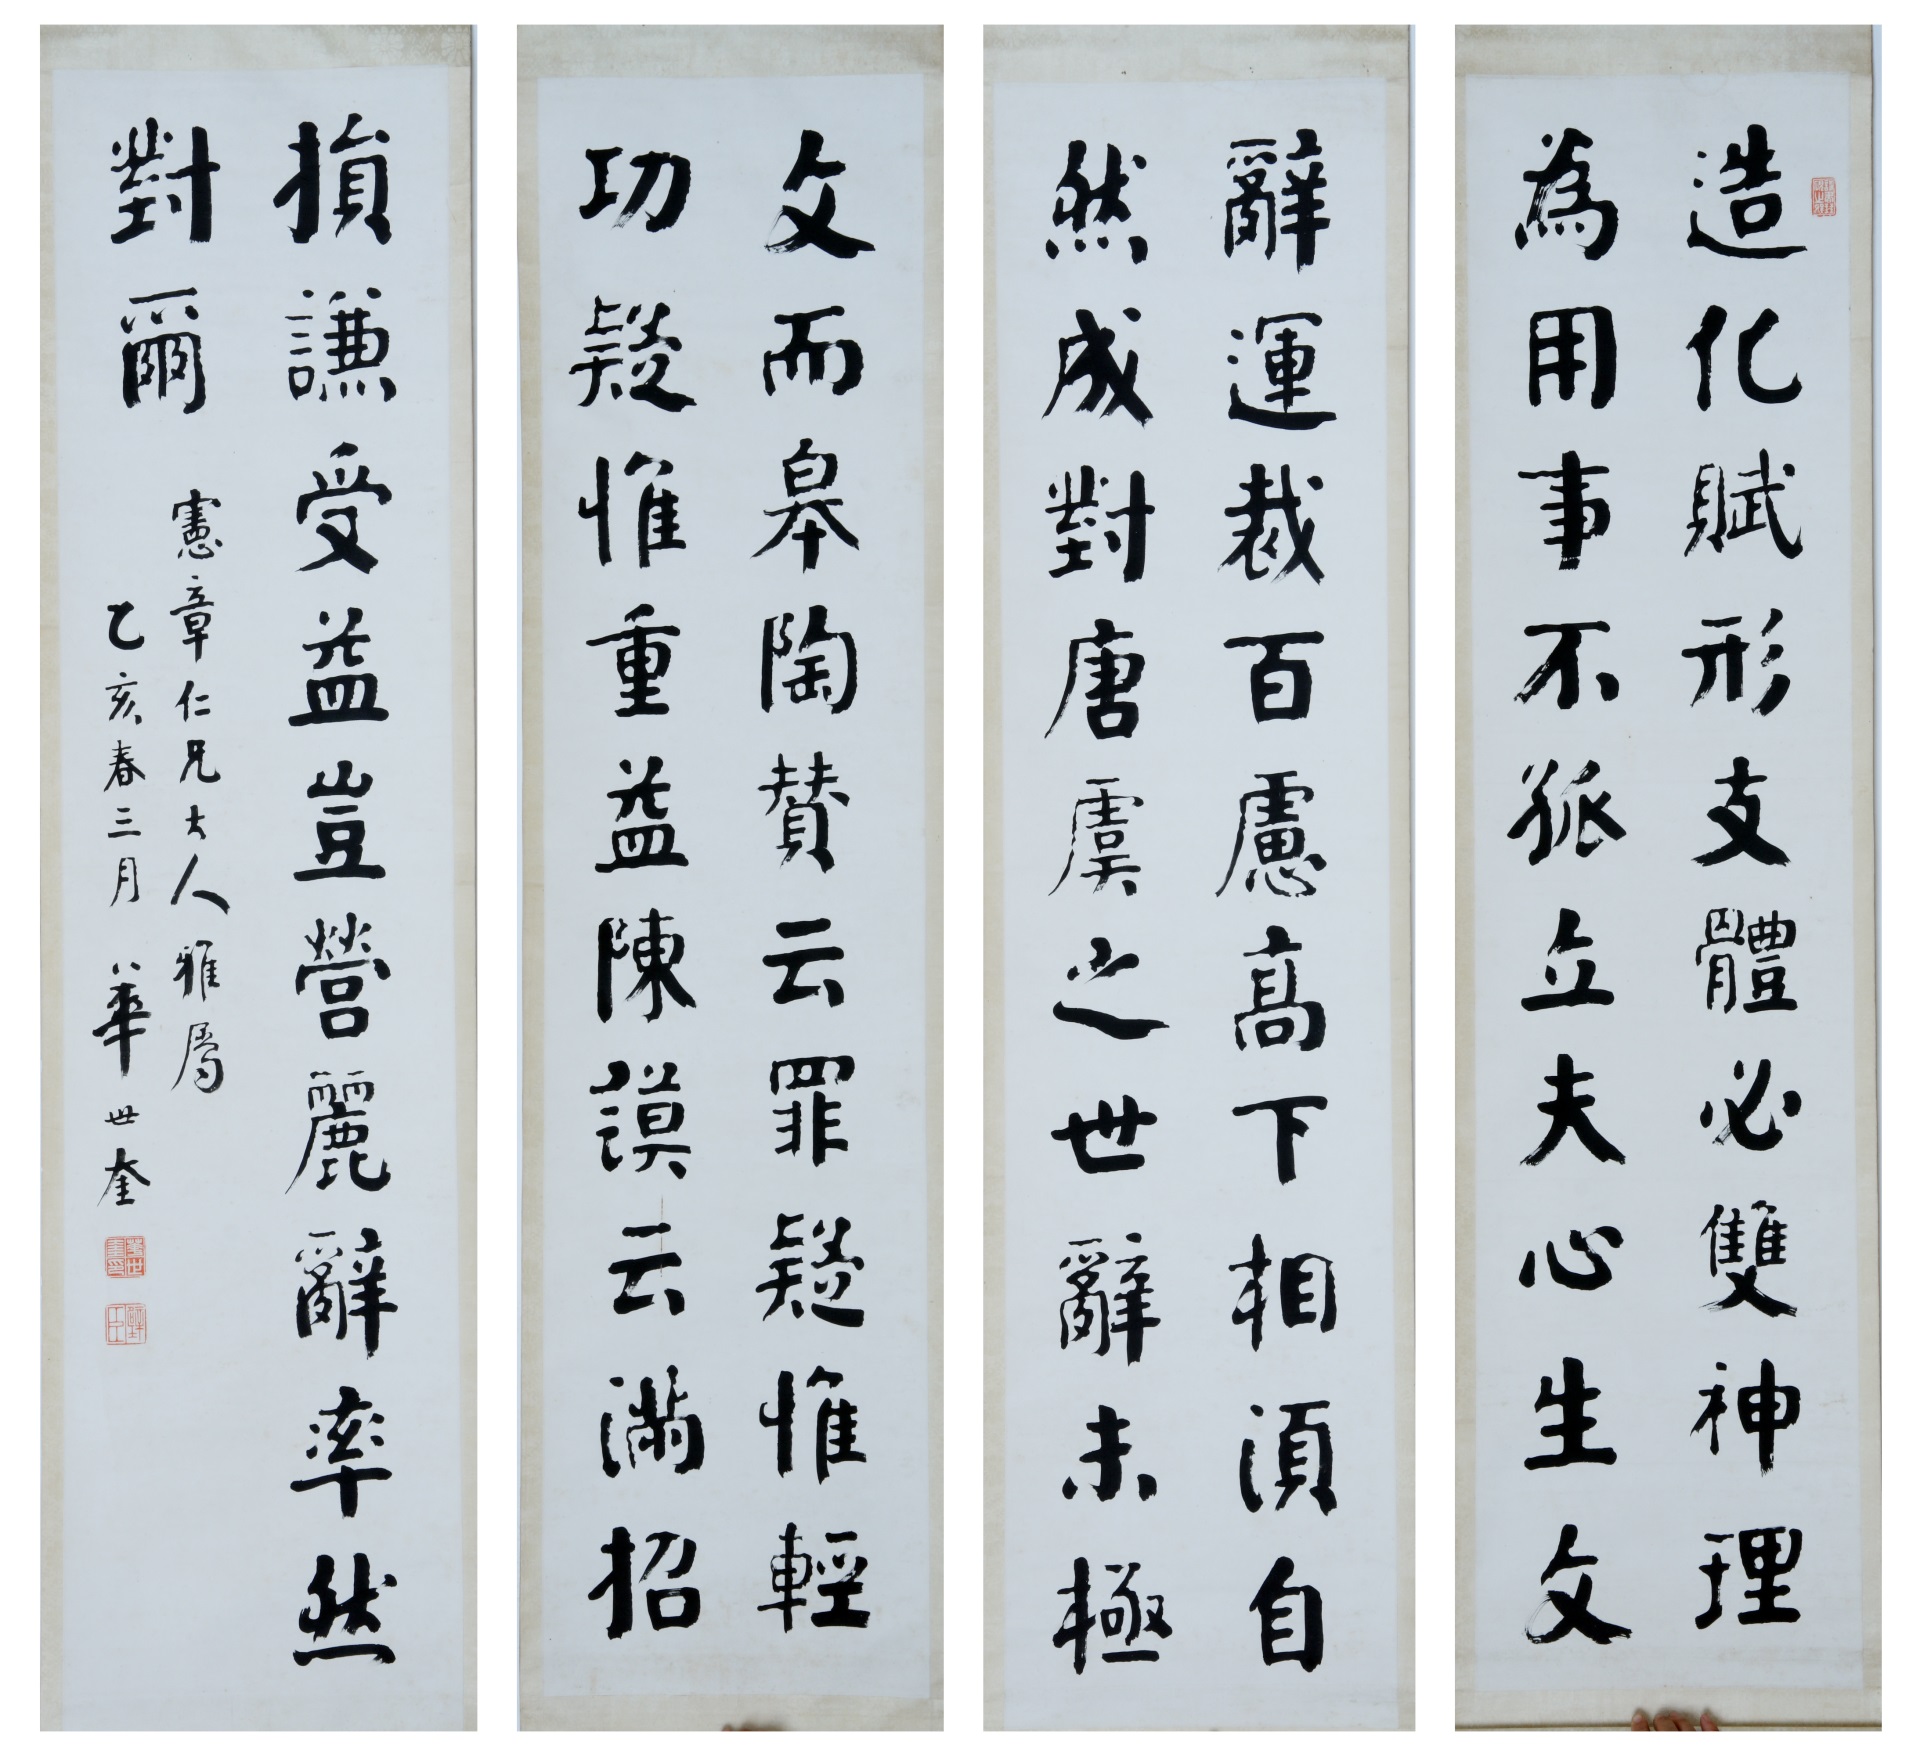 造化賦形支體必雙神理
為用事不孤立夫心生文
辭運裁百慮高下相須自
然成對唐虞之世辭未極
文而皋陶贊云罪疑惟輕
功疑惟重益陳謨云滿招
損謙受益豈營麗辭率然
對爾
憲章仁兄大人雅屬
乙亥春三月 華世奎